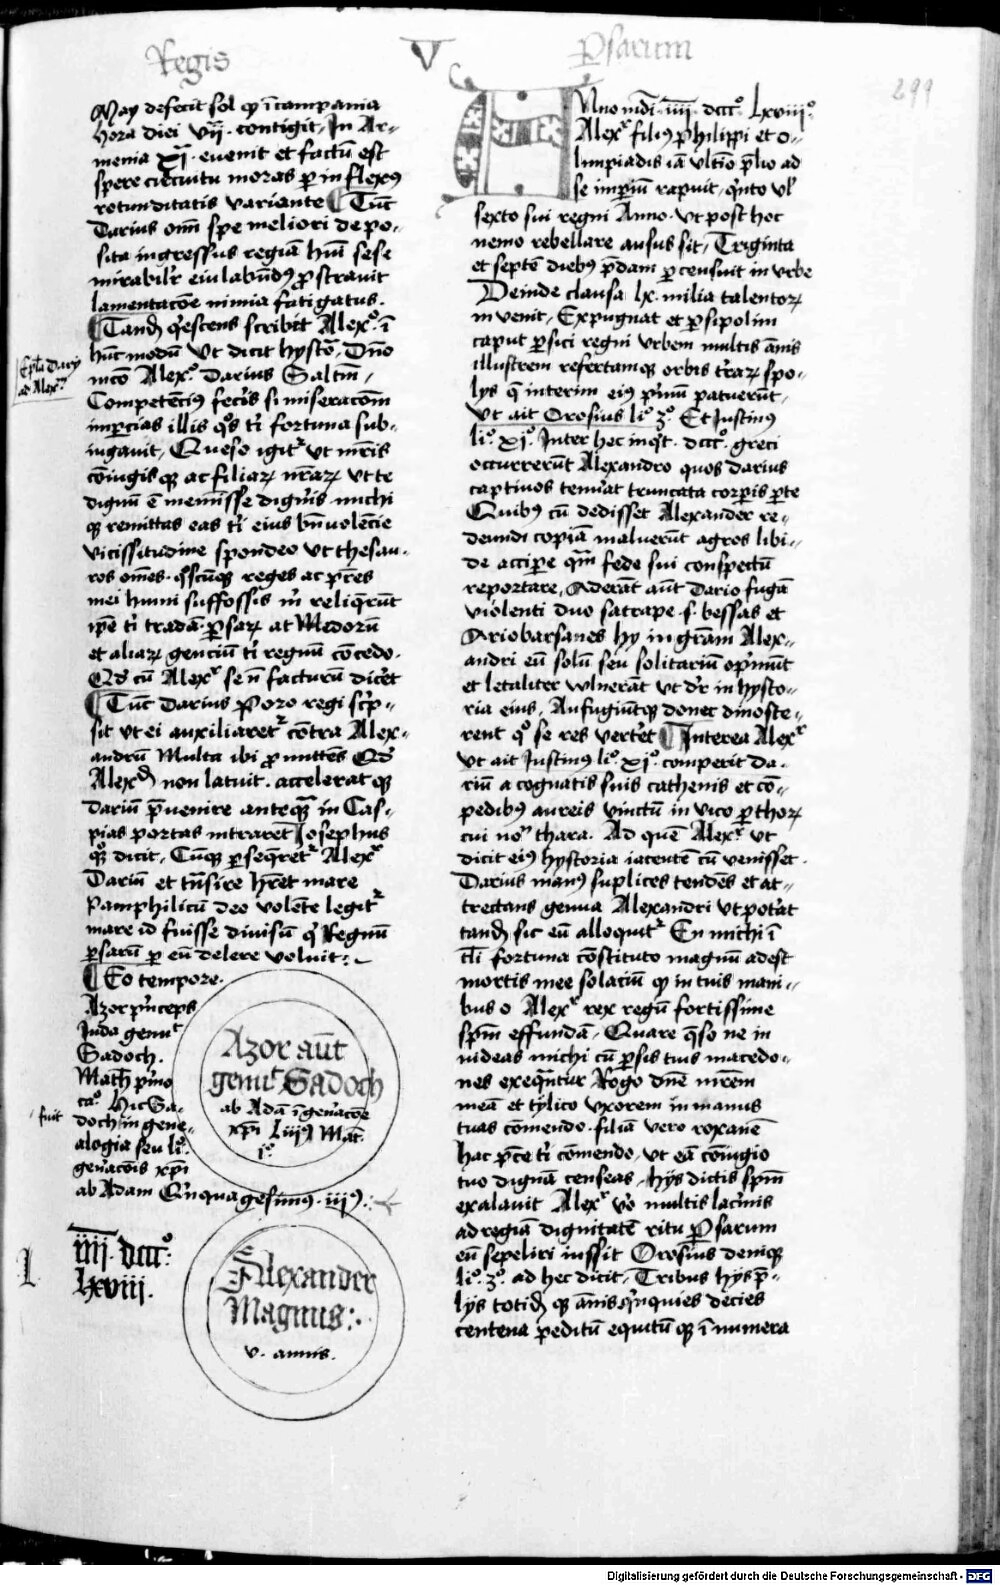 Regis
V
Persarum
299
May defecit sol qz ī campania
hora diei vii. contigit, In Ar-
menia xi. evenit et factū est
spere circuitu moras per inflexus
rotunditatis variante Tūc
Darius omī spe meliori depo-
sita ingressus regiā humi sese
mirabilr eiulabūdus prostravit
lamentacōe nimia fatigatus.
Tandē qescens scribit Alexo. ī
hūc modū Vt dicit hysto, Dño
meo Alexo. Darius Saltm,
Competēcius fecis si miseracōm
impcias illis qos ti fortuna sub-
iugavit, Queso igitr Vt mris
cōiugis qz ac filiarz nrarz Vt te
dignū ē meminisse digneris michi
qz remittas eas ti eius bnvolēcie
vicissitudine spondeo Vt thesau-
ros omēs. qoscūqz reges ac pres
mei humi suffossis m reliqerūt
ipe ti tradā. Psarz at Medorū
et aliarz genciū ti regnū cōcedo.
Qd cū Alexr se n facturū dicet
Tūc Darius Poro regi scrip-
sit Vt ei auxiliaretr cōtra Alex-
andrū Multa ibi promittēs Qd
Alexdr non latuit. accelerat qz
Dariū pvenire anteqm in Cas-
pias portas intraret Josephus
qo dicit, Cūqz perseqretr Alexr
Dariū et tnsire hret mare
Pamphilicū deo volēte legitr
mare id fuisse divisū qr Regnū
psarū per eū delere voluit:
Eo tempore.
Azor princeps
Juda genuit
Sadoch.
Math primo
cao. Hic Sa-
doch in gene-
fuit
alogia seu lio.
genacōis xpī
ab Adam Qinquagesimus. iijus:
Epla Darij
ad Alexr.
Azor aūt
genuit Sadoch
ab Adā ī genacōe
xpi Liijus Mat.
io.
iiij. dccco:
Lxviii.
Alexander
Magnus:.
v. annis.
Anno mdi. iiij. dccco. Lxviiio.
Alexr filius Philippi et o-
limpiadis iā Vltio plio ad
se impiū rapuit, qinto Vl
sexto sui regni Anno. Vt post hoc
nemo rebellare ausus sit, Triginta
et septē diebus pdam percensuit in Vrbe
Deinde clausa lx. milia talentorz
invenit, Expugnat et psipolim
caput psici regni Vrbem multis ānis
illustrem refertamqz orbis terarz spo-
lijs q interim eius pimū patuerūt,
Vt ait Orosius lio. 3o. Et Justinus
lio. xio. Inter hec inqit. dccco. greci
occurrerūt Alexandro quos Darius
captivos tenuat truncata corpis pte
Quibus cū dedisset Alexander re-
deundi copiā maluerūt agros libi-
de accipe qm fede sui conspectū
reportare, Aderāt aūt Dario fugā
violenti duo satrape .s. bessas et
Ariobarsanes hy in grām Alex-
andri eū solū seu solitariū opmūt
et letaliter wlnerāt Vt dr in hysto-
ria eius, Aufugiūtqz donec dinosce-
rent qo se res verteret Interea Alexr
Vt ait Justinus lio. xio. comperit da-
riū a cognatis suis cathenis et cō-
pedibus aureis vinctū in vico perthorz
cui nom thara. Ad quē Alexr. Vt
dicit eius hystoria iacentē cū venisset.
Darius manus suplices tendēs et at-
trectans genua Alexandri Vt potat
tandē sic eū alloquitr En michi ī
tli fortuna cōstituto magnū adest
mortis mee solatiū qz in tuis mani-
bus o Alexr rex regū fortissime
spm effundā, Quare qso ne in
videas michi cū psis tuis macedo-
nes exequātur Rogo dnē mrēm
meā et tylico Vxorem in manus
tuas cōmendo. filiā vero roxanē
hac pce ti cōmendo, Vt eā cōiugio
tuo dignā censeas, hys dictis spm
exalavit Alexr vo multis lacmis
ad regiā dignitatē ritu Psarum
eū sepeliri iussit Orosius deniqz
lio. 3o. ad hec dicit, Tribus hys p-
lijs totidē qz ānis qinquies decies
centena peditū equitū qz ī numera
Digitalisierung gefördert durch die Deutsche Forschungsgemeinschaft - DFG